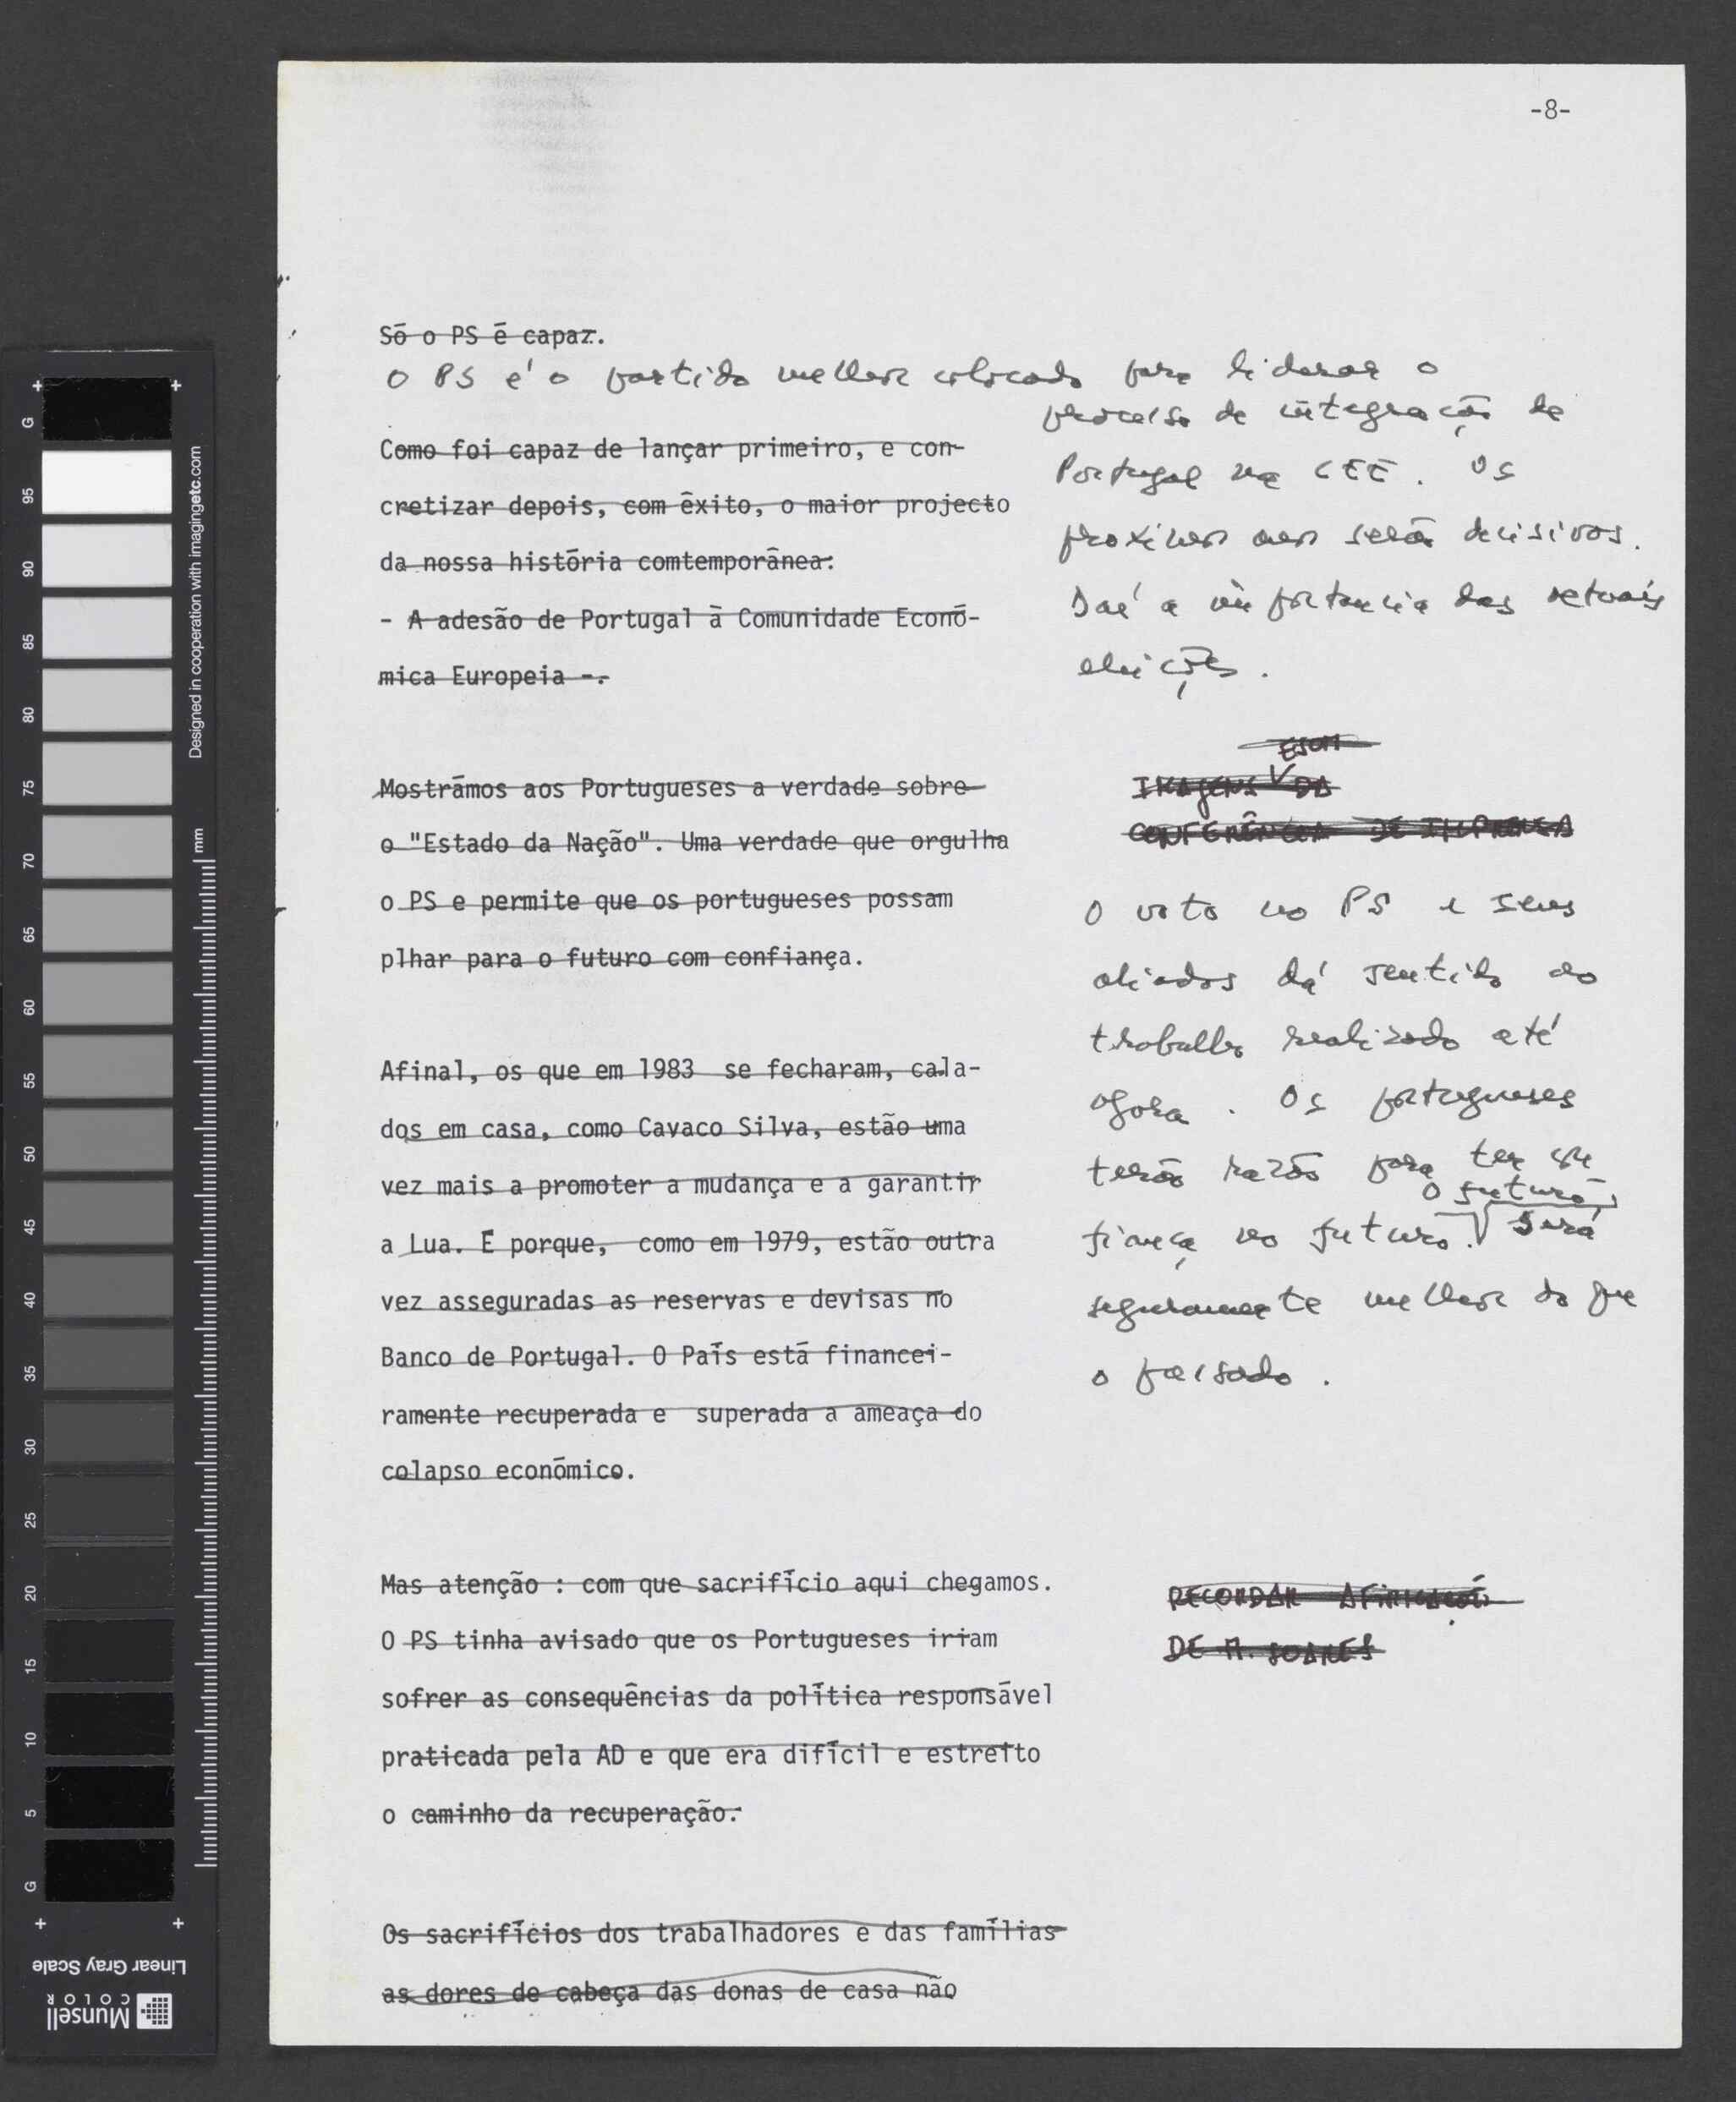 -8-
Só o PS é capaz.
O PS é o partido melhor colocado para liderar o
processo de integração de
Portugal na CEE. Os
proximos anos serão decisivos.
Daí a importancia das actuais
eleições.
Como foi capaz de lançar primeiro, e con-
cretizar depois, com êxito, o maior projecto
da nossa história comtemporânea:
- A adesão de Portugal à Comunidade Econó-
mica Europeia -.
Mostrámos aos Portugueses a verdade sobre
o "Estado da Nação". Uma verdade que orgulha
o PS e permite que os portugueses possam
plhar para o futuro com confiança.
IMAGENS DA
CONFERÊNCIA DE IMPRENSA
O voto no PS e seus
aliados dá sentido ao
trabalho realizado até
agora. Os portugueses
terão razão para ter con
fiança no futuro. O futuro será
seguramente melhor do que
o passado.
Afinal, os que em 1983 se fecharam, cala-
dos em casa, como Cavaco Silva, estão uma
vez mais a promoter a mudança e a garantir
a Lua. E porque, como em 1979, estão outra
vez asseguradas as reservas e devisas no
Banco de Portugal. O País está financei-
ramente recuperada e superada a ameaça do
colapso económico.
Mas atenção : com que sacrifício aqui chegamos.
O PS tinha avisado que os Portugueses iriam
sofrer as consequências da política responsável
praticada pela AD e que era difícil e estreito
o caminho da recuperação.
RECORDAR AFIRMAÇÕES
DE M. SOARES
Os sacrifícios dos trabalhadores e das famílias
as dores de cabeça das donas de casa não
G
95
90
85
80
75
70
65
60
55
50
45
40
35
30
25
20
15
10
5
G
mm
Designed in cooperation with imagingetc.com
Linear Gray Scale
Munsell
COLOR